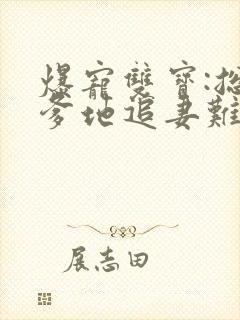 爆寵雙寶:總
爹地追妻難
展志田